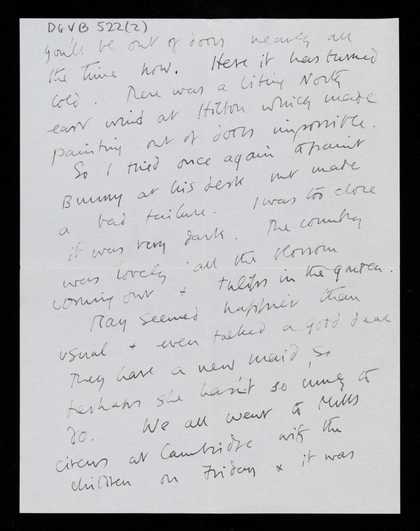 DGVB 522(2)
you'll be out of doors nearly all
the time now. Here it has turned
cold. There was a biting North
east wind at Hilton which made
painting out of doors impossible.
So I tried once again to paint
Bunny at his desk but made
a bad failure. I was too close
it was very dark. The country
was lovely all the blossom
coming out + tulips in the garden.
Ray seemed happier than
usual + even talked a good deal
They have a new maid, so
perhaps she hasn't so much to
do. We all went to Mills
circus at Cambridge with the
children on Friday + it was